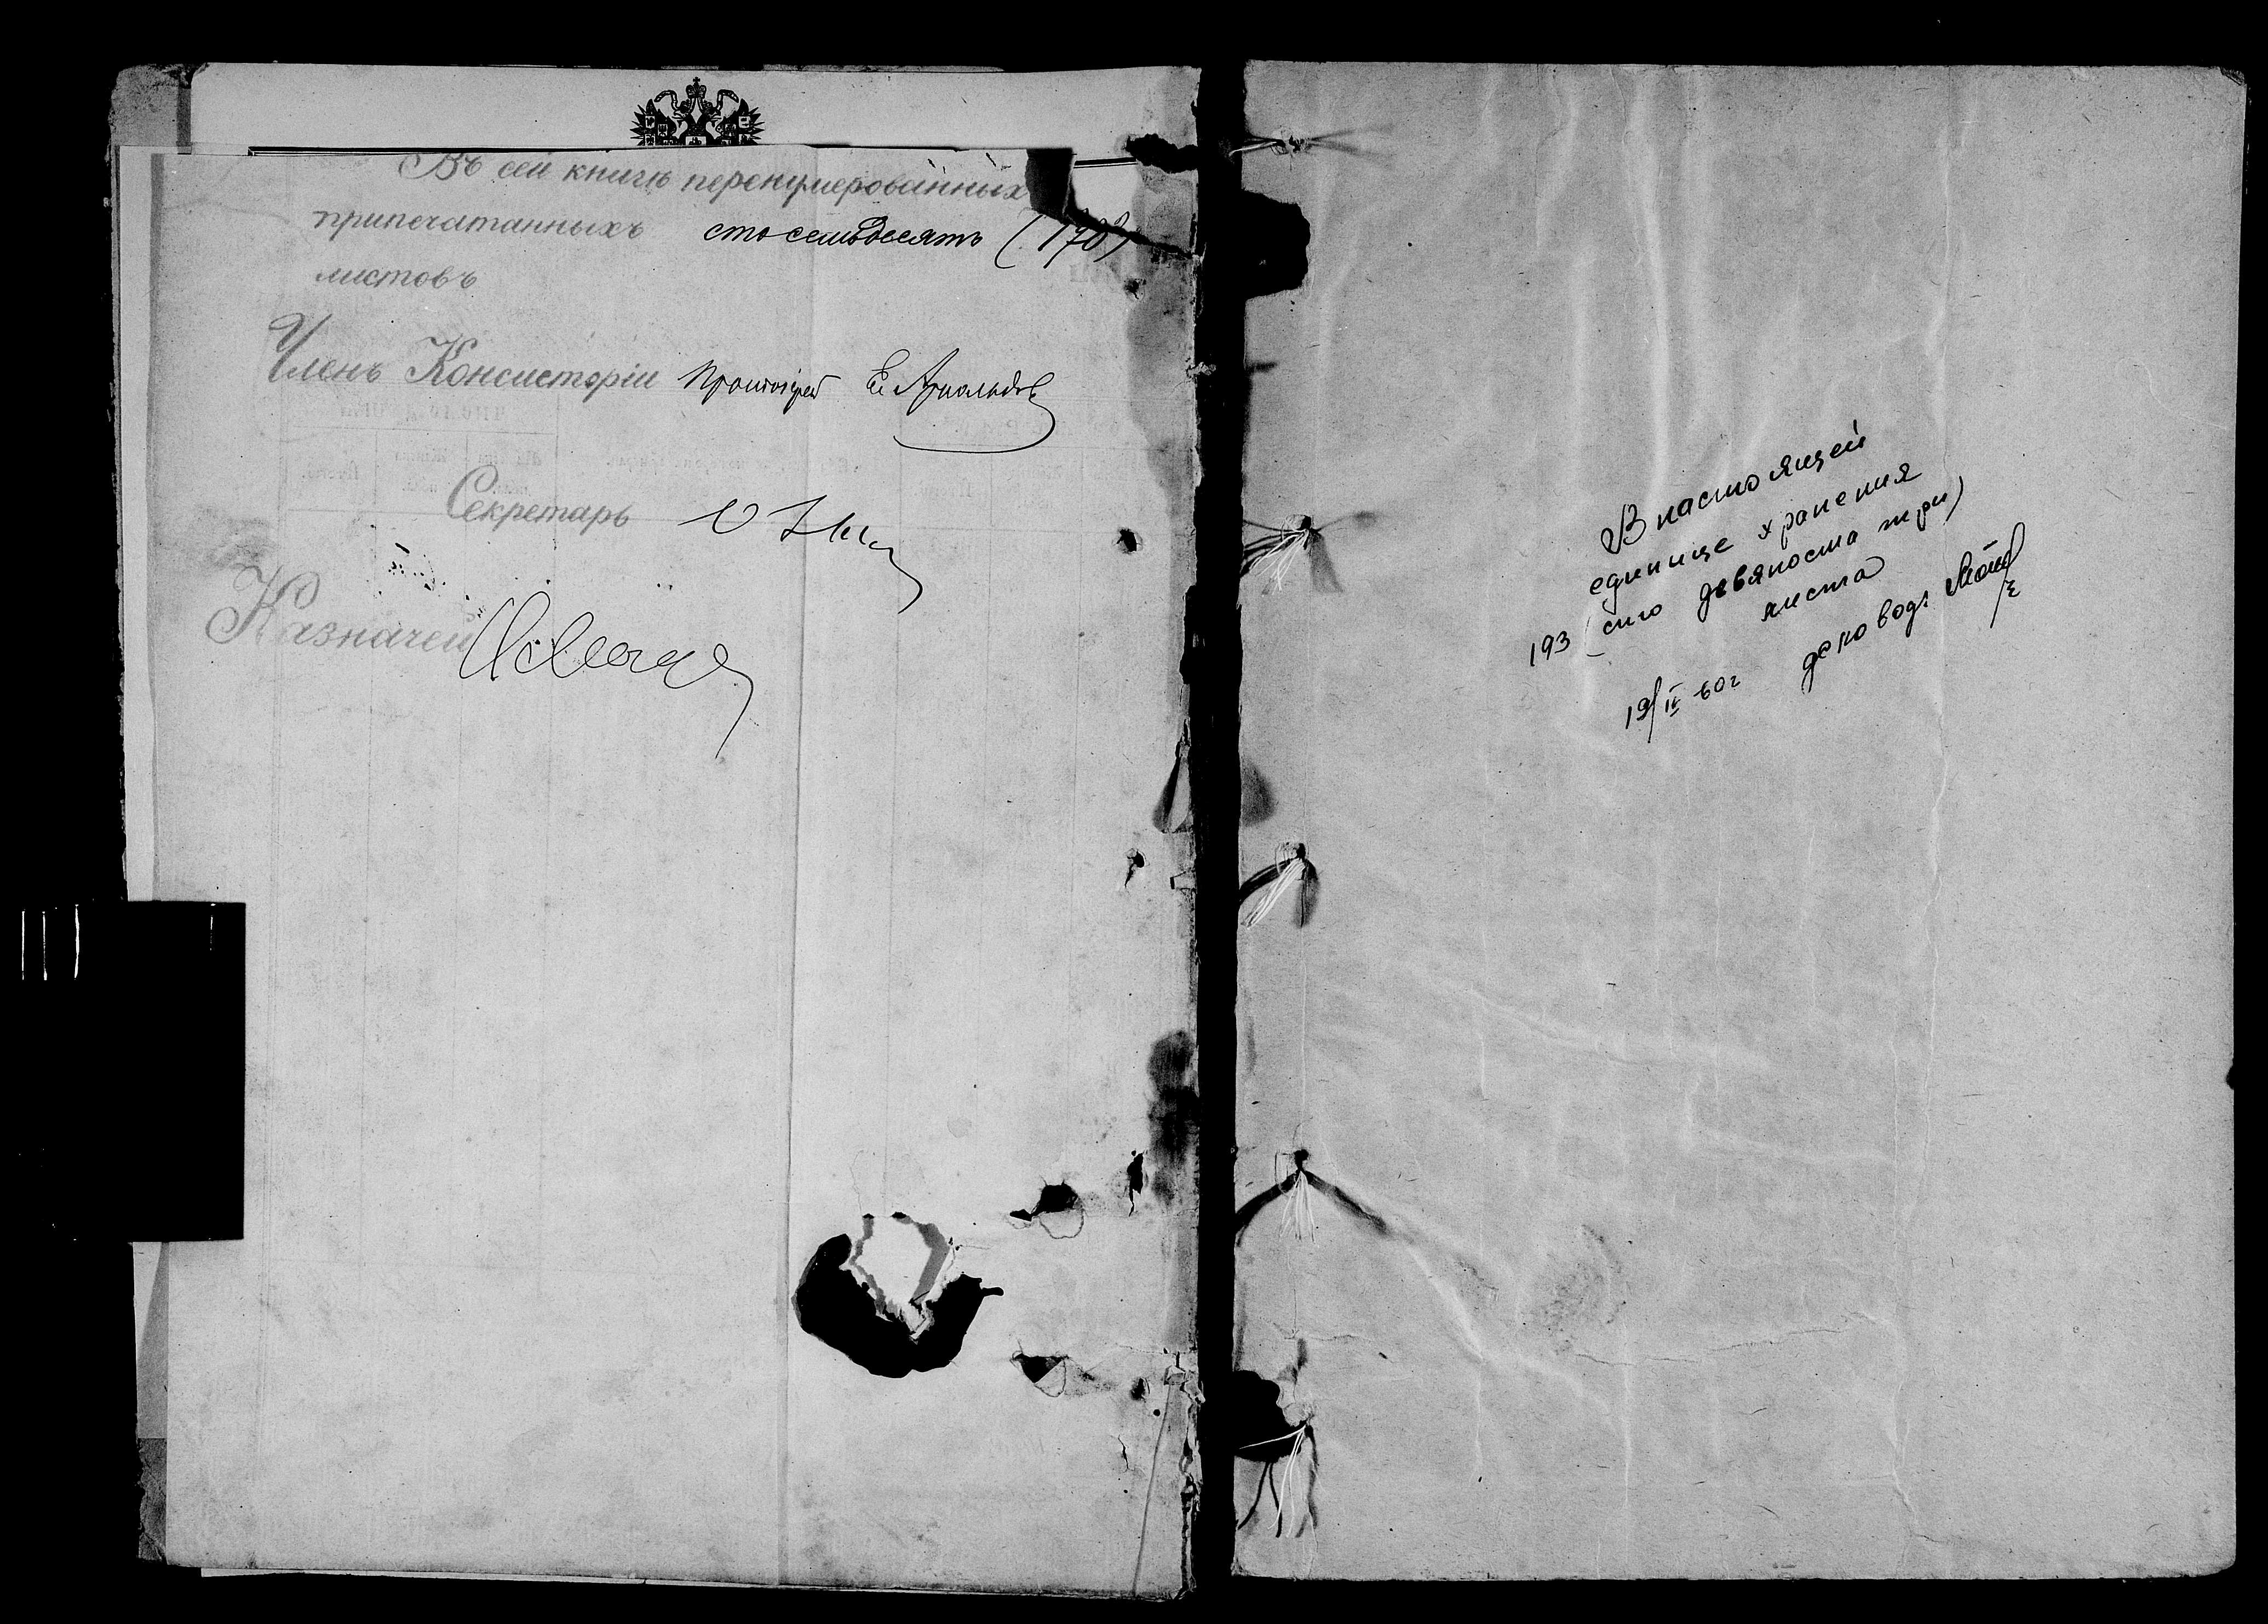 Въ сей книгѣ перенумерованныхъ
припечатанныхъ сто семьдесятъ (170)
листовъ
Членъ Консисторіи Протоіерей Ел. Арнольдов
Секретарь
Казначей
В настоящей
единице хранения
193 (сто девяноста три)
листа
19/II 60г деловод.